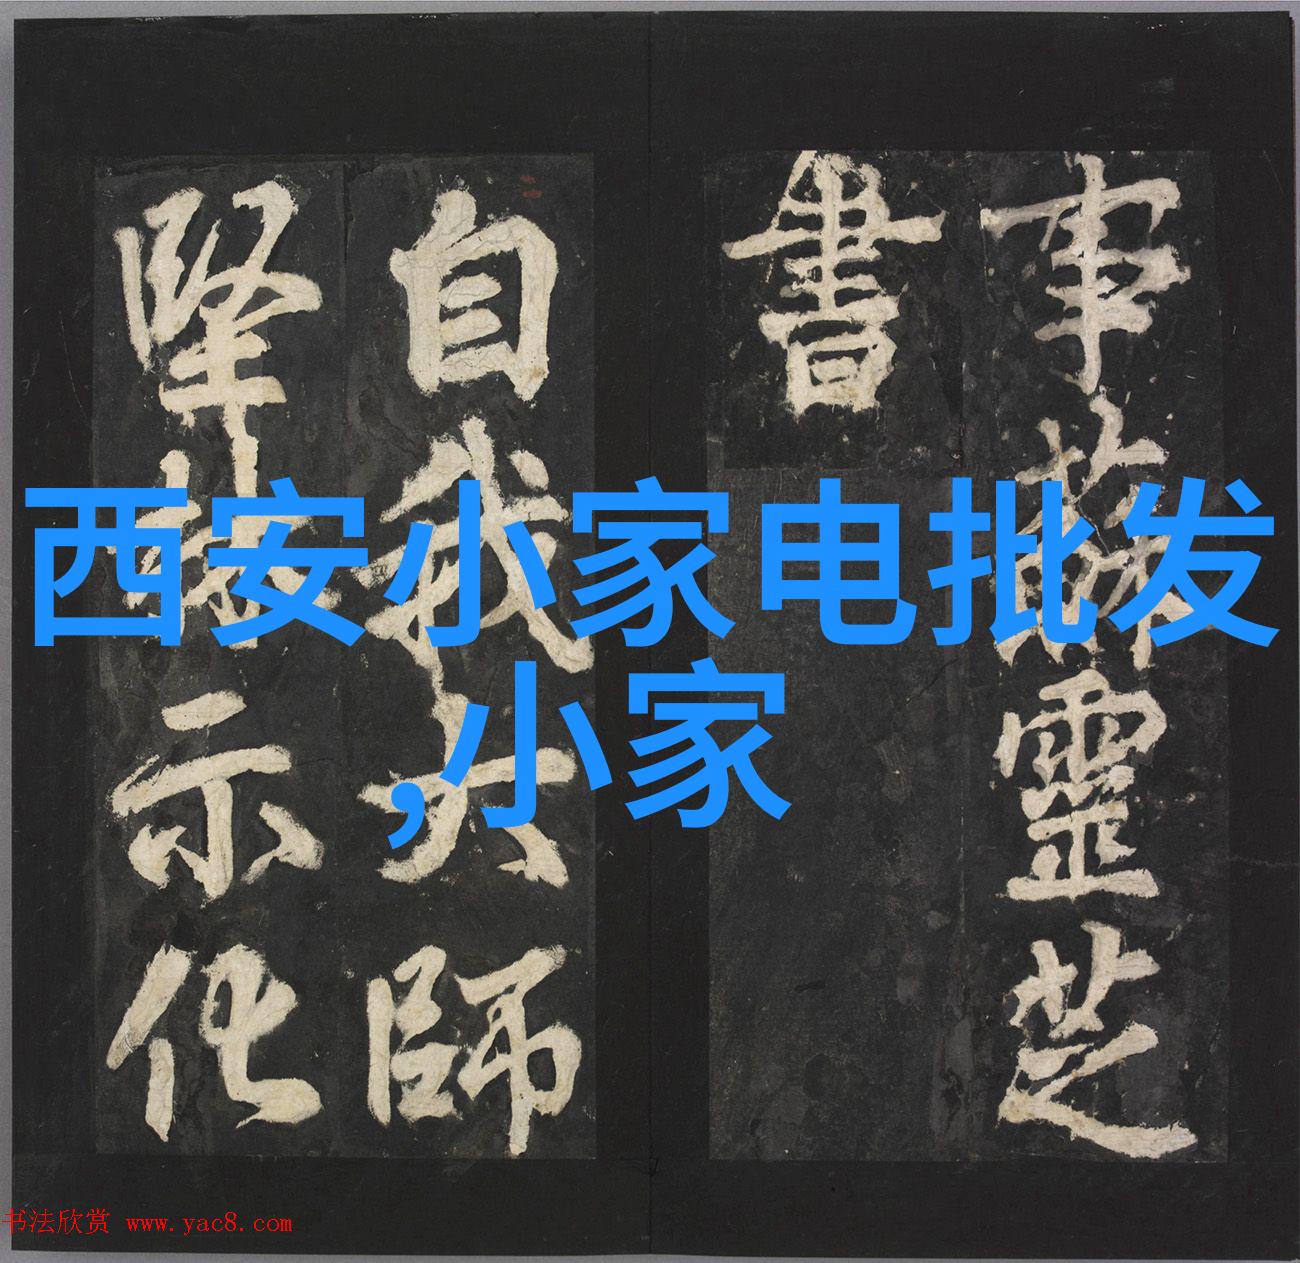 事蘇靈芝
書
自我大師
堅林示化
西安小家电批发
,小家
书法欣赏 www.yac8.com